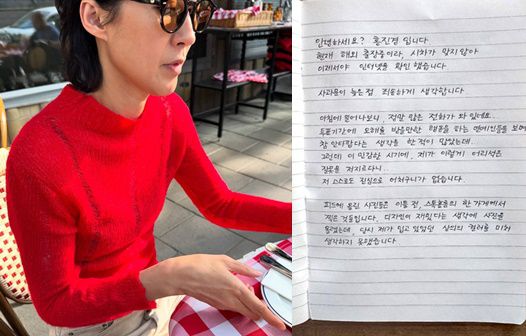 안녕하세요? 홍진경 입니다
현재 해외 출장중이라, 시차가 맞지 않아
이제서야 인터넷을 확인 했습니다.
사과문이 늦은점 죄송하게 생각합니다.
아침에 일어나보니, 정말 많은 전화가 와 있네요..
투표기간에 오해를 받을만한 행동을 하는 연예인들을 보며
참 안타깝다는 생각을 한 적이 많았는데..
그런데 이 민감한 시기에, 제가 이렇게 어리석은
잘못을 저지르다니..
저 스스로도 진심으로 어처구니가 없습니다.
피드에 올린 사진들은 이틀 전, 스톡홀름의 한 가게에서
찍은 것들입니다. 디자인이 재밌다는 생각에 사진을
올렸는데, 당시 제가 입고 있었던 상의의 컬러를 미처
생각하지 못했습니다.